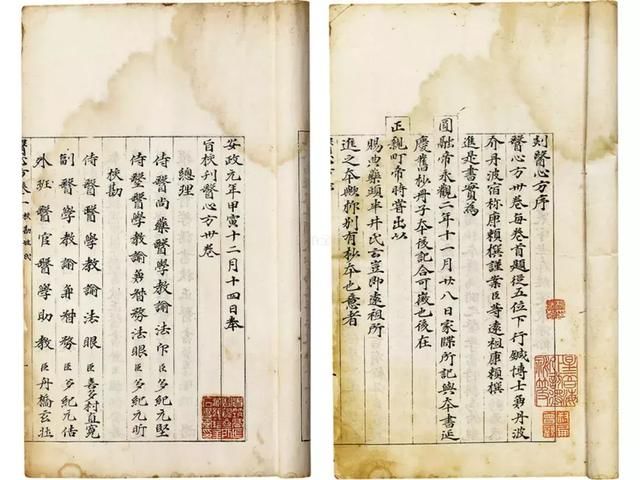 刻醫心方序
醫心方卅卷每卷首題從五位下行鍼博士兼丹波
介丹波宿祢康賴撰謹案臣等遠祖康賴撰
進是書實為
圓融帝永觀二年十一月廿八日家牒所記與本書延
慶舊抄丹子本後記合可徵也後在
正親町帝時嘗出以
賜典藥頭半井氏言豈即遠祖所
進之本歟抑別有抄本也意者
安政元年甲寅十二月十四日奉
旨校刊醫心方卅卷
總理
侍醫尚藥醫學教諭法印臣多紀元堅
侍醫醫學教諭兼督務法眼臣多紀元昕
校勘
侍醫醫學教諭法眼臣喜多村直寬
副醫學教諭兼督務臣多紀元佶
外班醫官醫學助教臣丹橋玄壯